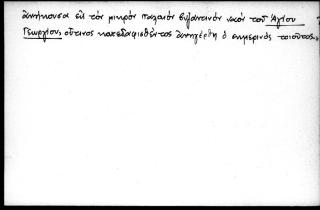 ἀνήκουσα εἰς τὸν μικρὸν παλαιὸν βυζαντινὸν ναὸν τοῦ Ἁγίου
Γεωργίου, οὗτινος κατεδαφισθέντος ἀνηγέρθη ὁ σημερινὸς τοιοῦτος.